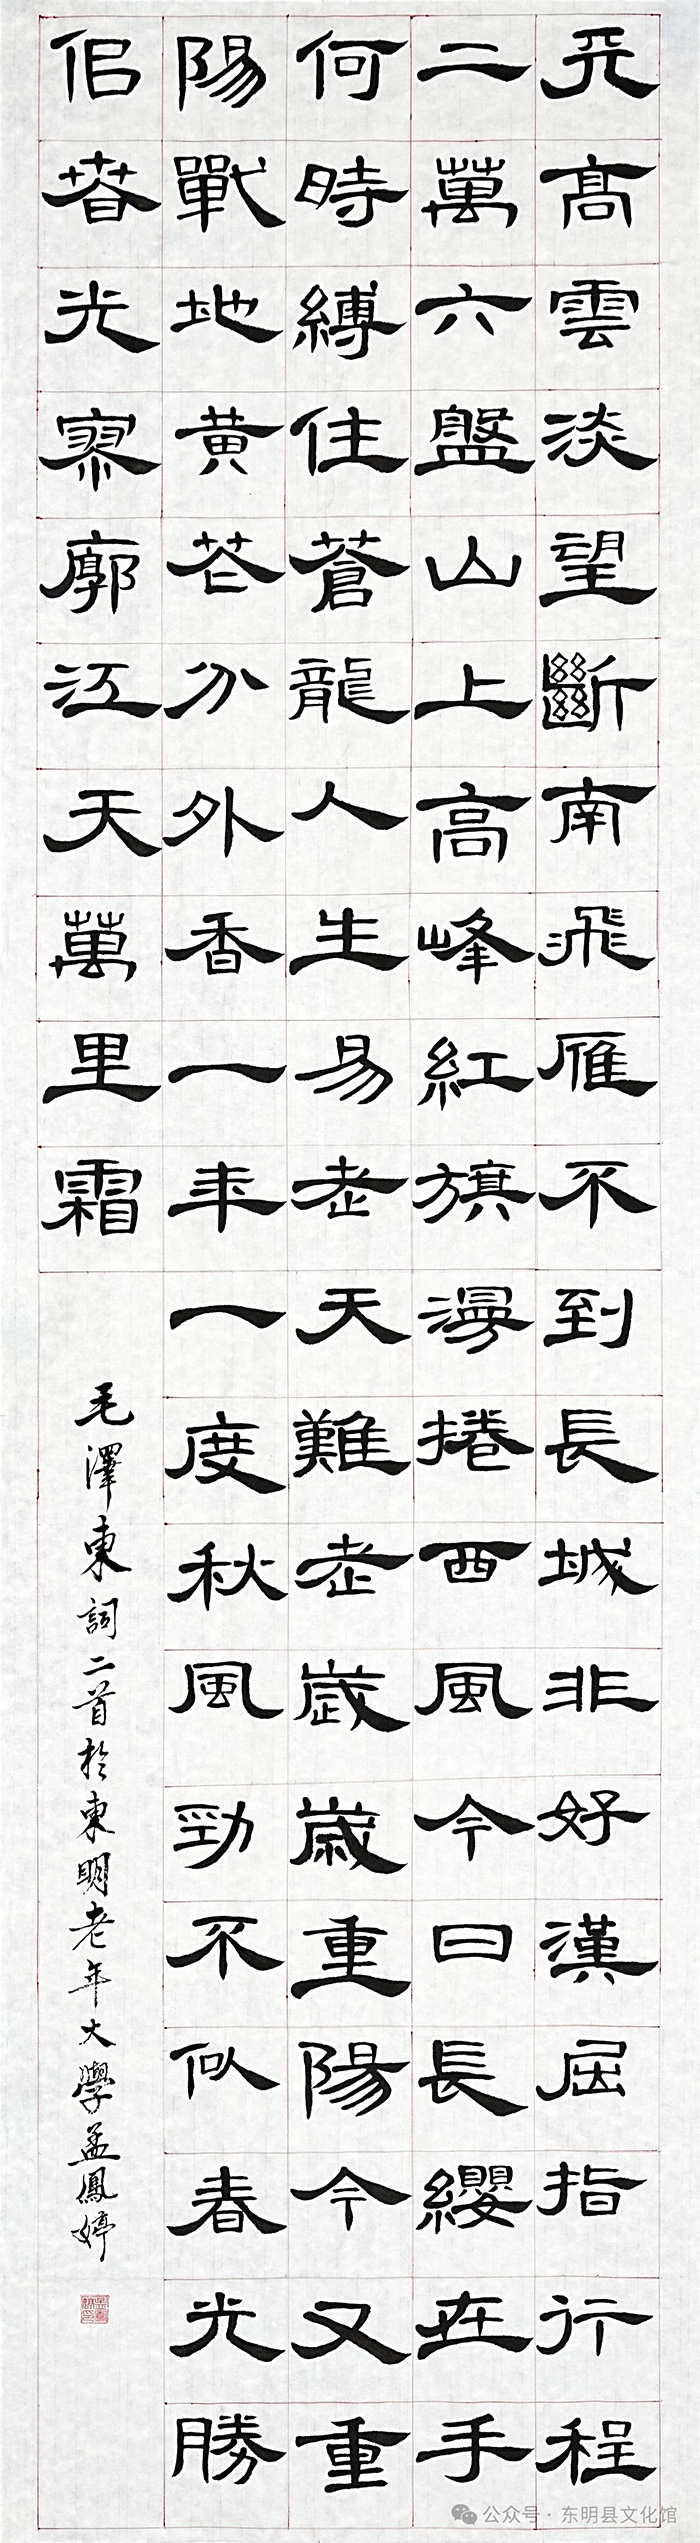 天高雲淡望斷南飛雁不到長城非好漢屈指行程
二萬六盤山上高峰紅旗漫捲西風今日長纓在手
何時縛住蒼龍人生易老天難老歲歲重陽今又重
陽戰地黃花分外香一年一度秋風勁不似春光勝
佀春光寥廓江天萬里霜
毛澤東詞二首於東明老年大學孟鳳婷
公众号·东明县文化馆